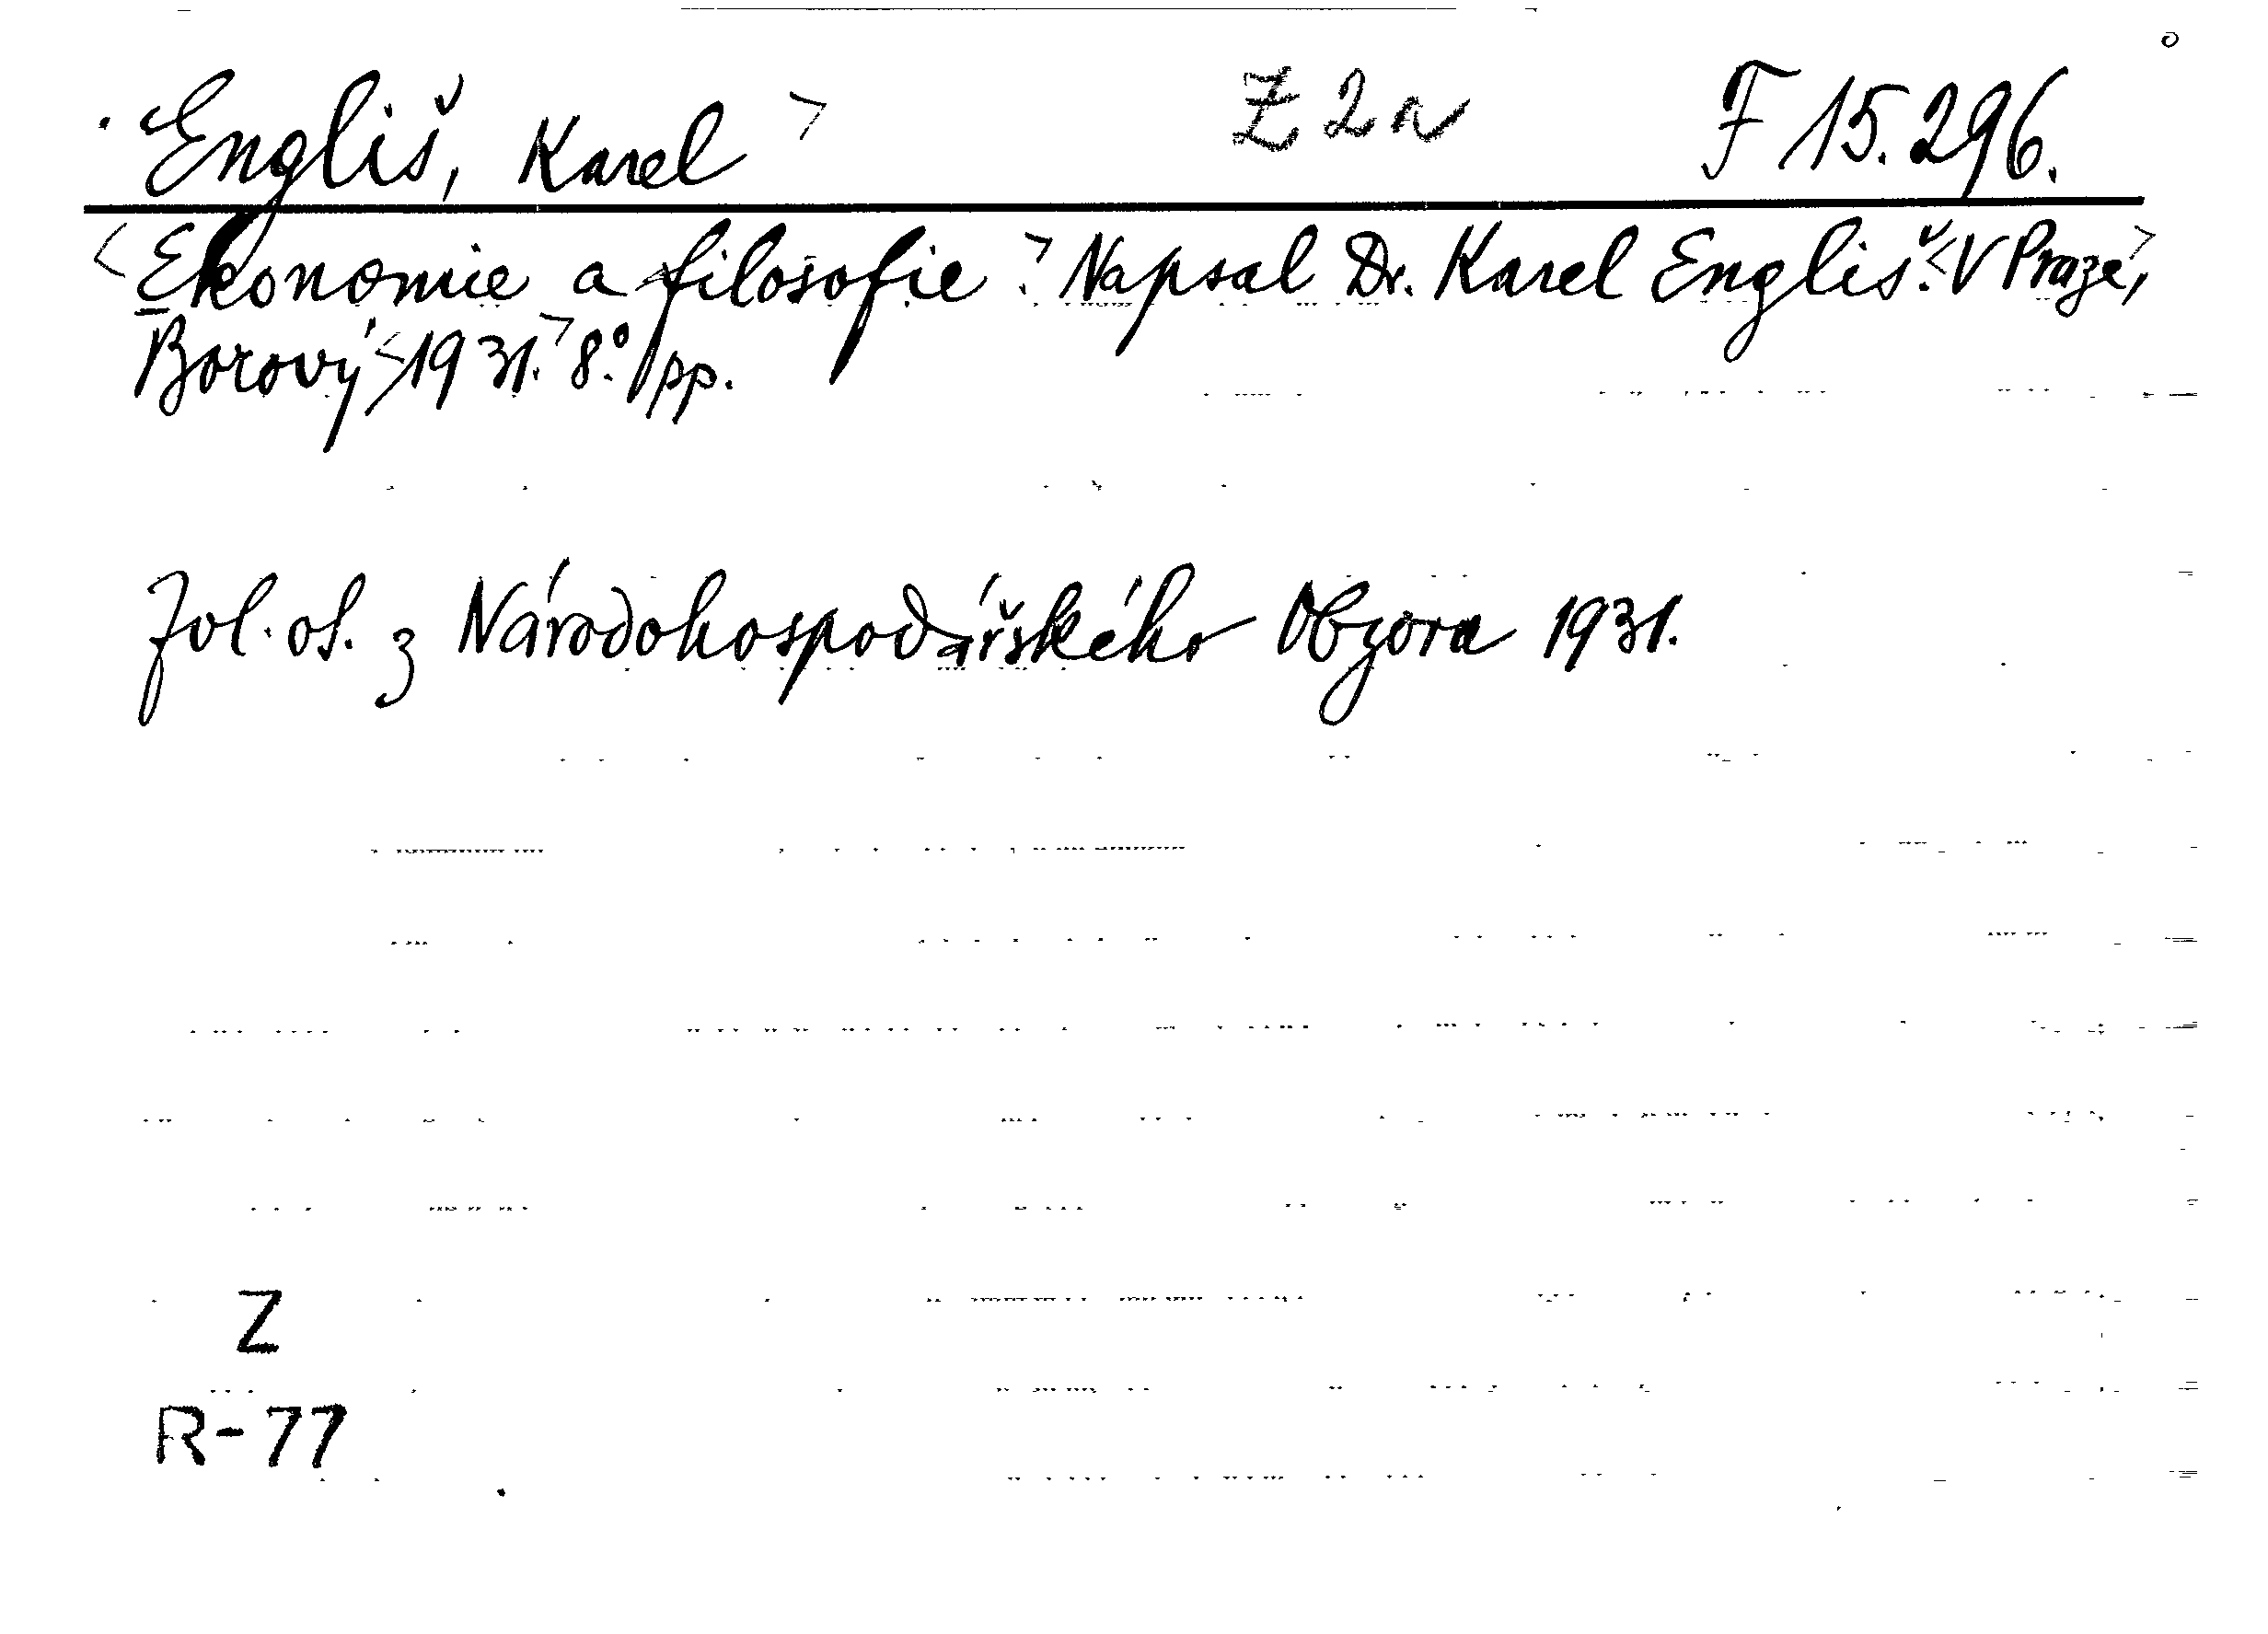 Engliš, Karel > Z 2 a F 15.296.
<Ekonomie a filosofie.> Napsal Dr. Karel Engliš. <V Praze,>
Borový <1931.> 8° pp.
Zvl. ot. z Národohospodářského Obzora 1931.
Z
R-77